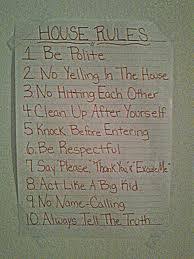 HOUSE RULES
1. Be Polite
2. No Yelling In The House
3. No Hitting Each Other
4. Clean Up After Yourself
5. Knock Before Entering
6. Be Respectful
7. Say Please, "Thank You" & "Excuse Me"
8. Act Like A Big Kid
9. No Name-Calling
10. Always Tell The Truth